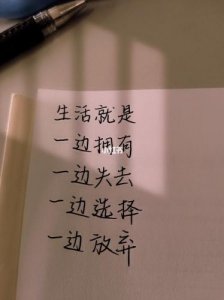 生活就是
一边拥有
一边失去
一边选择
一边放弃